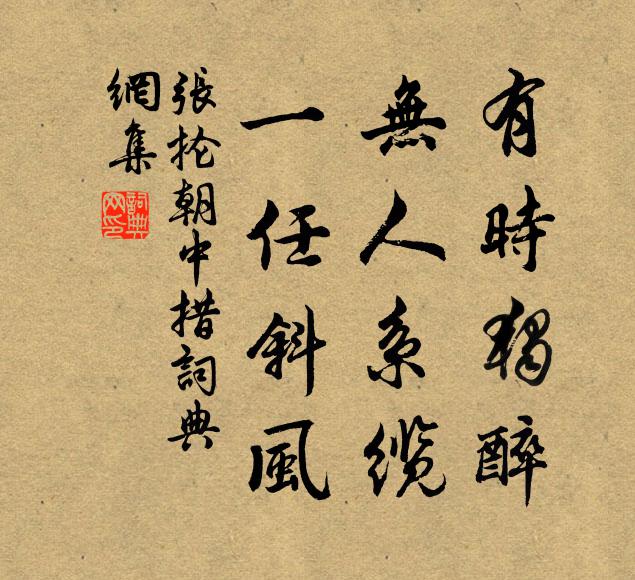 有時獨醉
無人系纜
一任斜風
張抡朝中措詞典
網集
詞典
网印